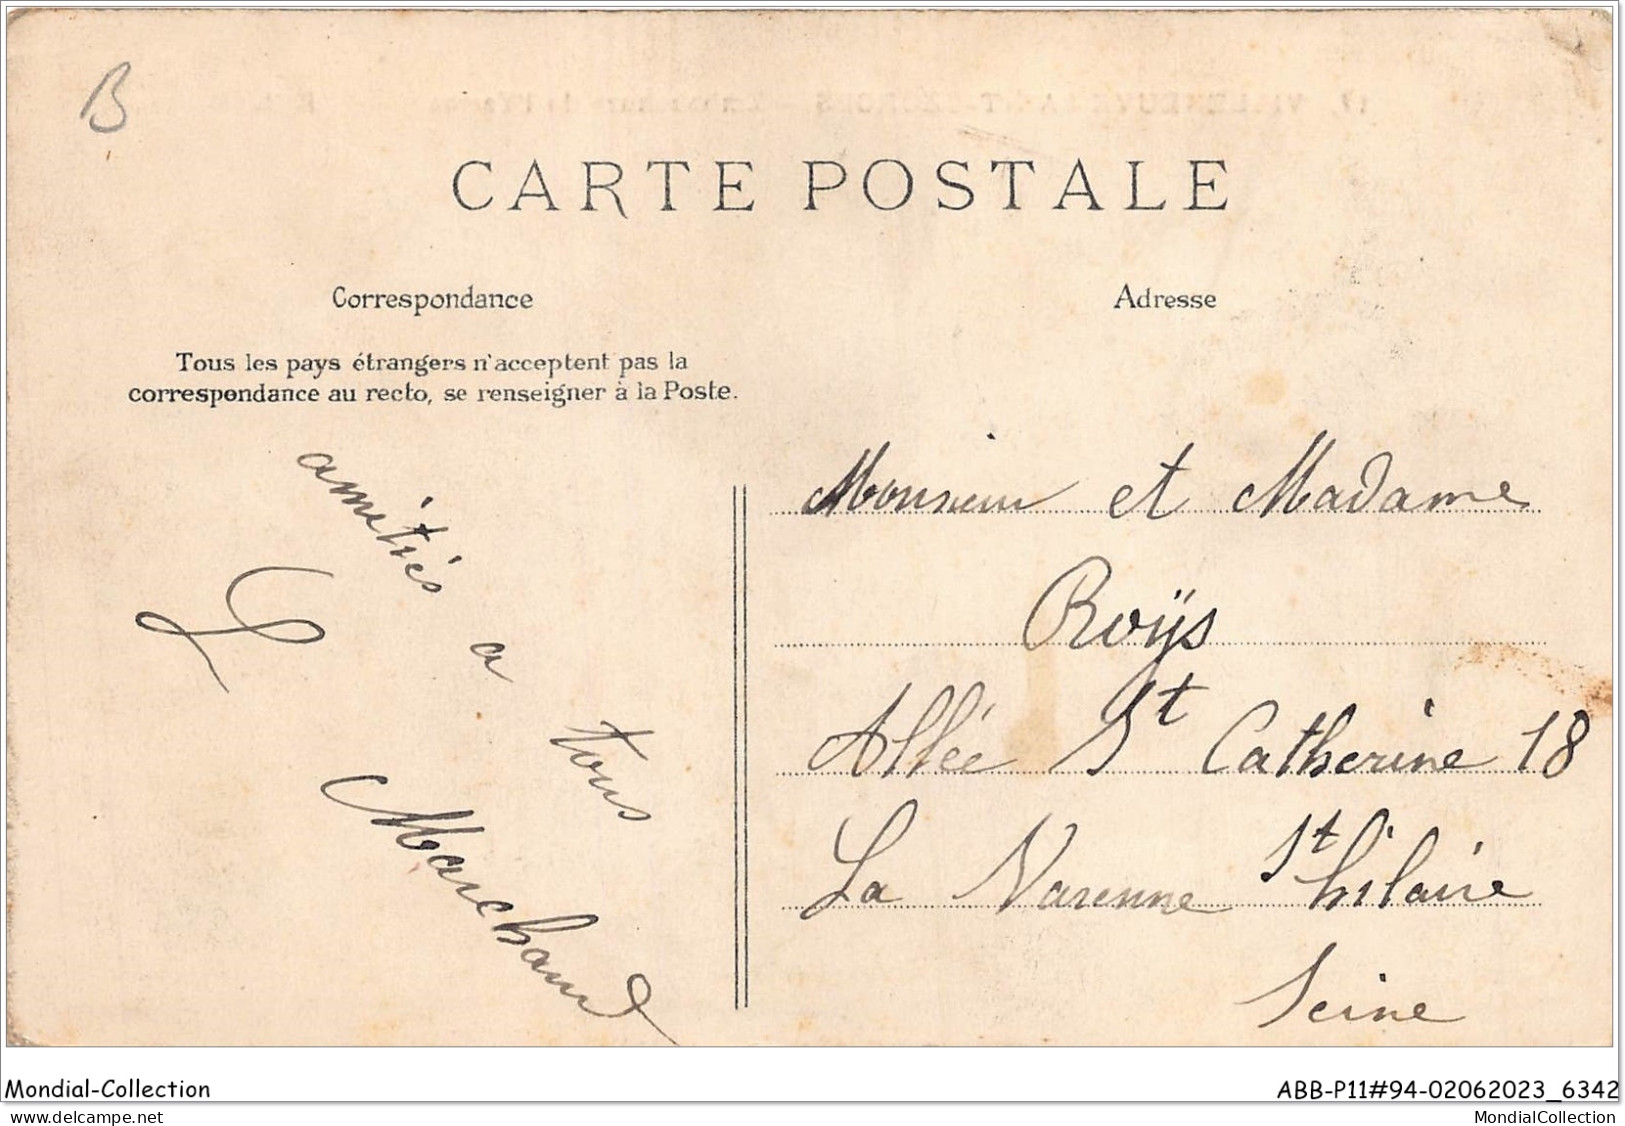 B
CARTE POSTALE
Correspondance
Tous les pays étrangers n'acceptent pas la
correspondance au recto, se renseigner à la Poste.
amitiés a tous
L Marchand
Adresse
Monsieur et Madame
Roÿs
Allée St Catherine 18
La Varenne St hilaire
Seine
Mondial-Collection
ABB-P11#94-02062023_6342
www.delcampe.net
MondialCollection